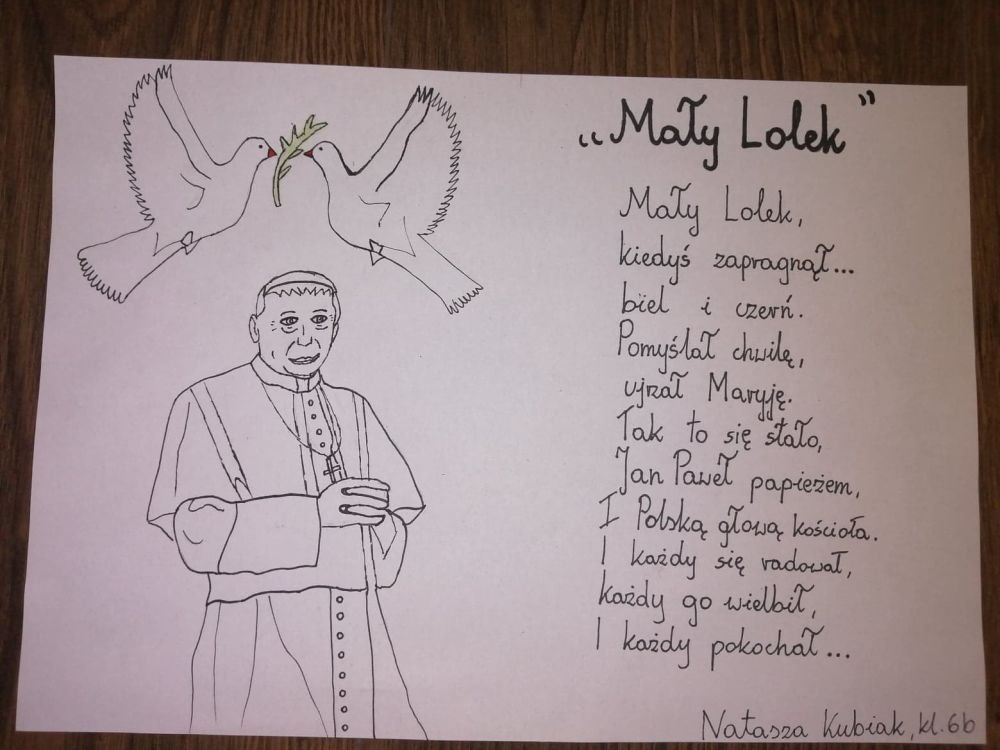 „Mały Lolek”
Mały Lolek,
kiedyś zapragnął...
biel i czerń.
Pomyślał chwilę,
ujrzał Maryję.
Tak to się stało,
Jan Paweł papieżem,
I Polską głową kościoła.
I każdy się radował,
każdy go wielbił,
I każdy pokochał...
Natasza Kubiak, kl. 6b